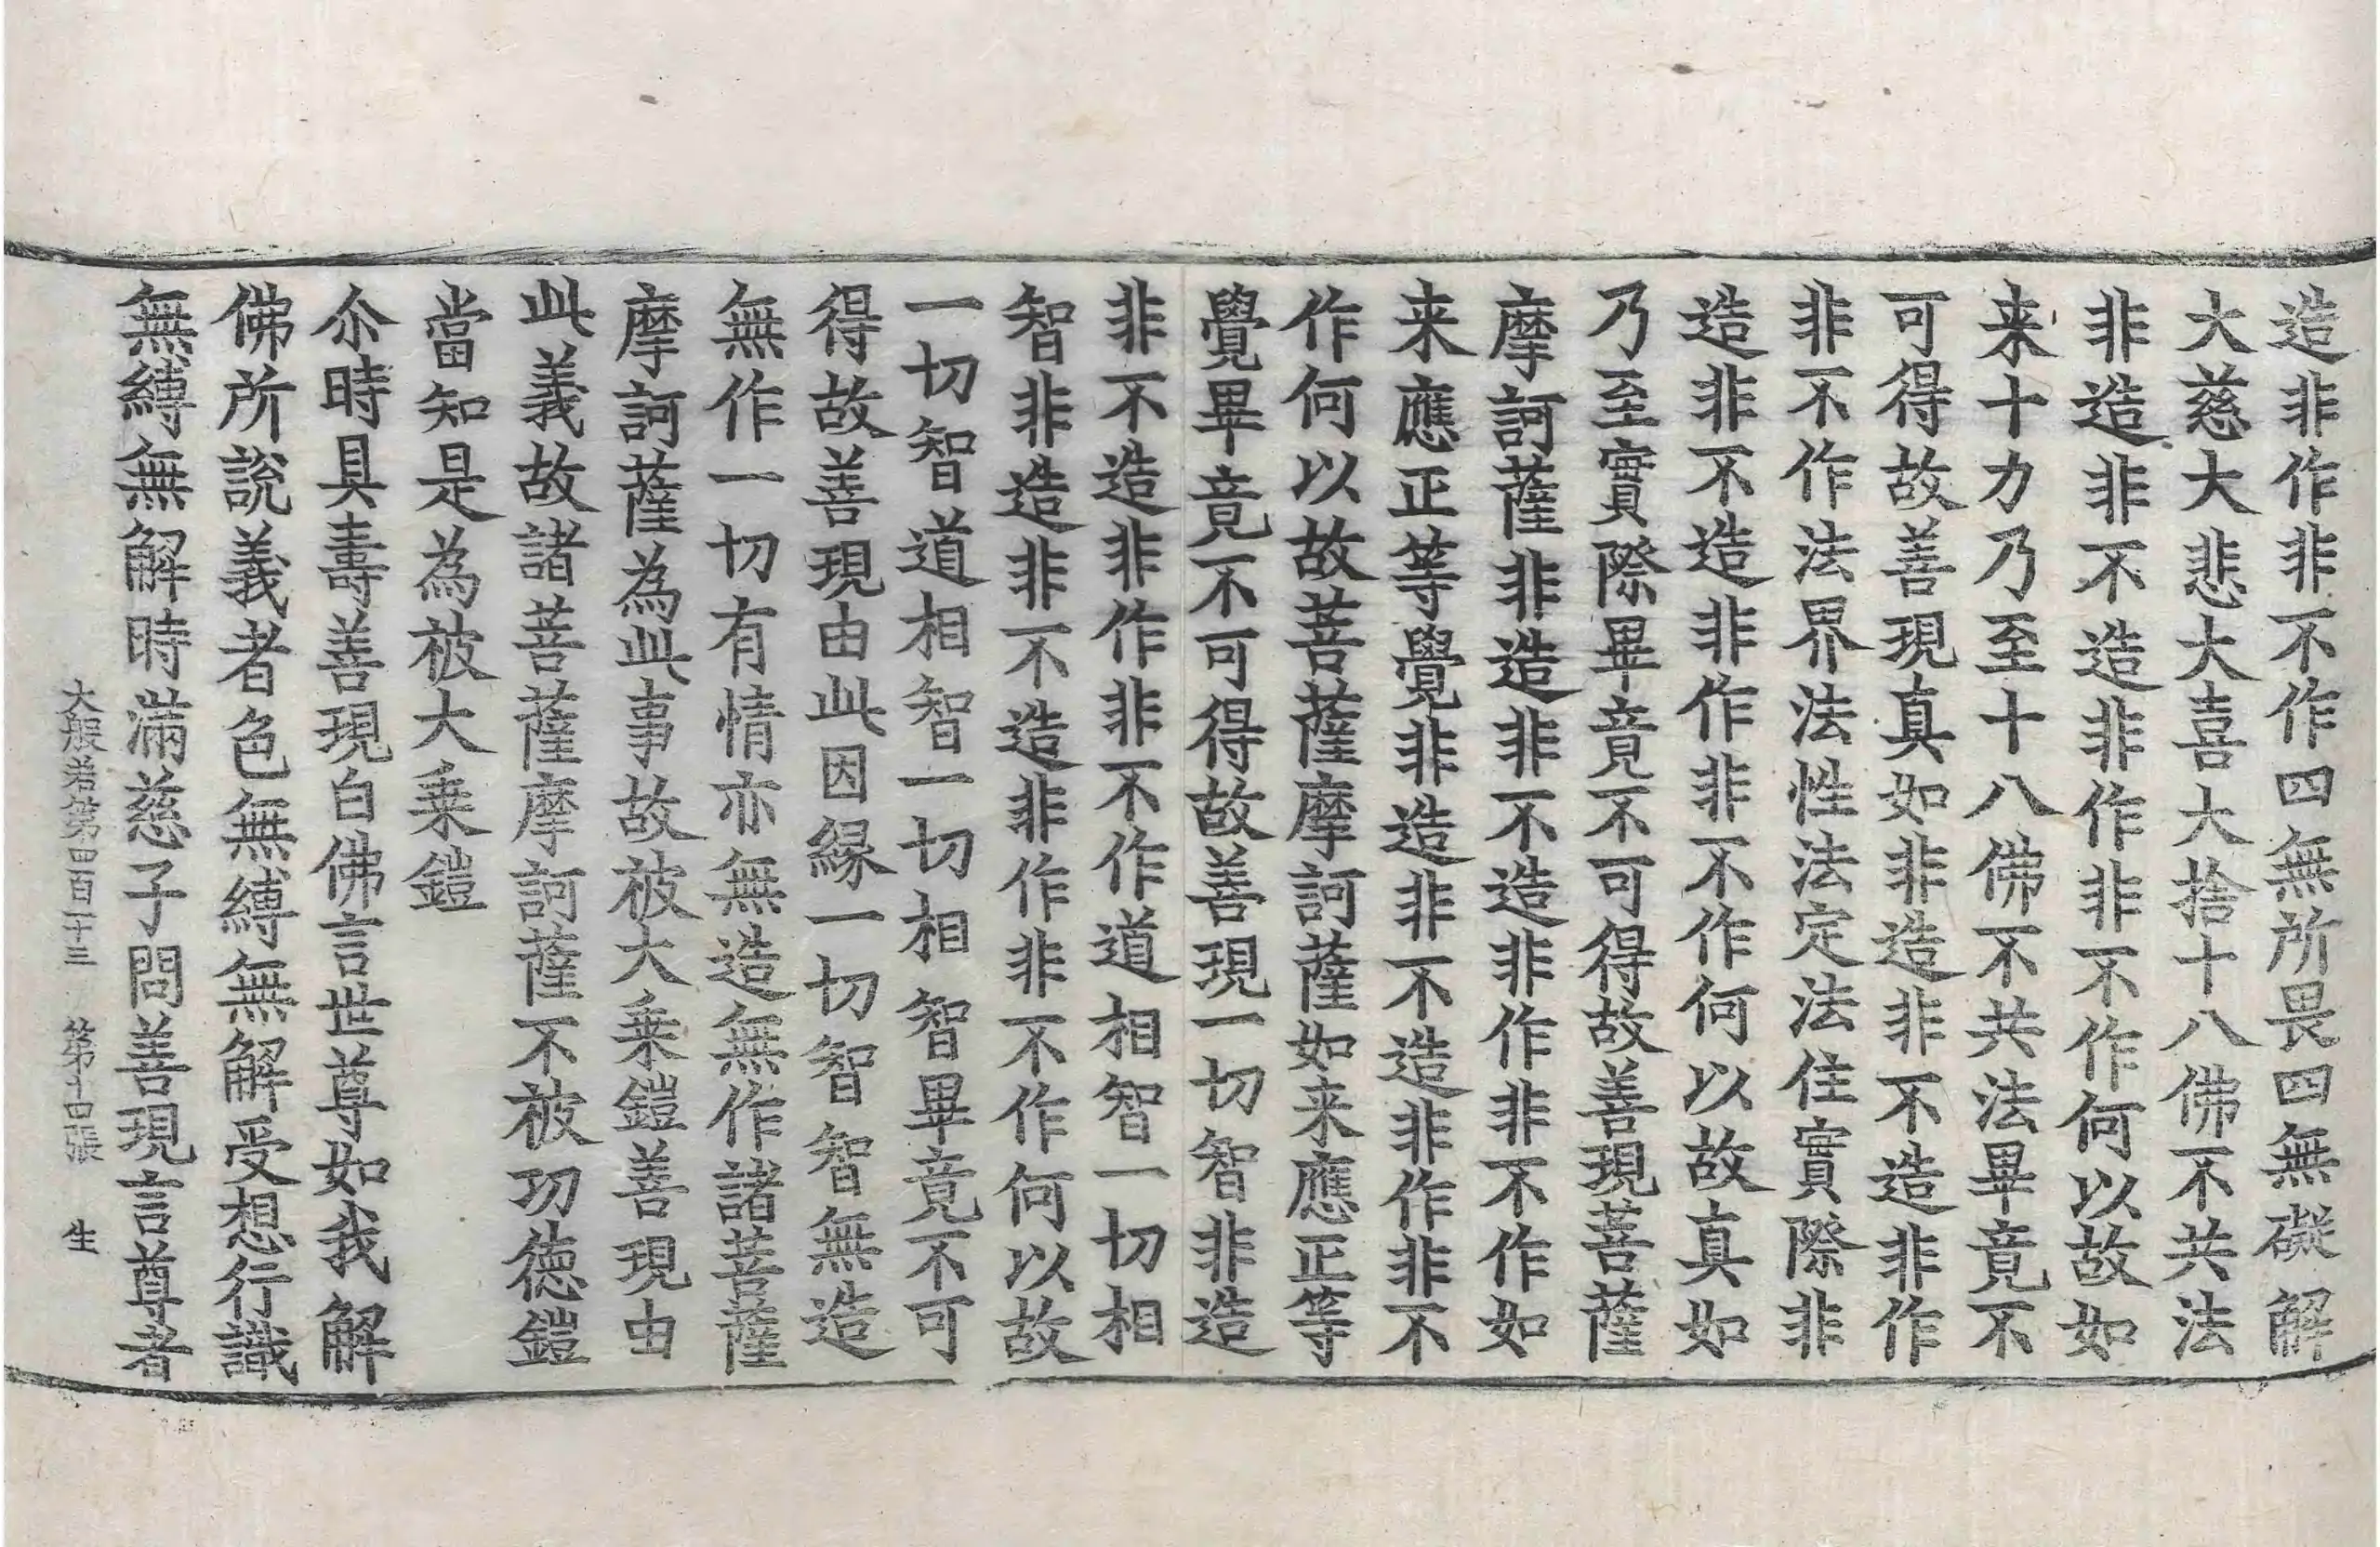 造非作非不作四無所畏四無礙解
大慈大悲大喜大捨十八佛不共法
非造非不造非作非不作何以故如
来十力乃至十八佛不共法畢竟不
可得故善現真如非造非不造非作
非不作法界法性法定法住實際非
造非不造非作非不作何以故真如
乃至實際畢竟不可得故善現菩薩
摩訶薩非造非不造非作非不作如
来應正等覺非造非不造非作非不
作何以故菩薩摩訶薩如来應正等
覺畢竟不可得故善現一切智非造
非不造非作非不作道相智一切相
智非造非不造非作非不作何以故
一切智道相智一切相智畢竟不可
得故善現由此因緣一切智智無造
無作一切有情亦無造無作諸菩薩
摩訶薩為此事故被大乗鎧善現由
此義故諸菩薩摩訶薩不被功徳鎧
當知是為被大乗鎧
尒時具壽善現白佛言世尊如我解
佛所說義者色無縛無解受想行識
無縛無解時滿慈子問善現言尊者
大般若第四百一十三 第十四張 生